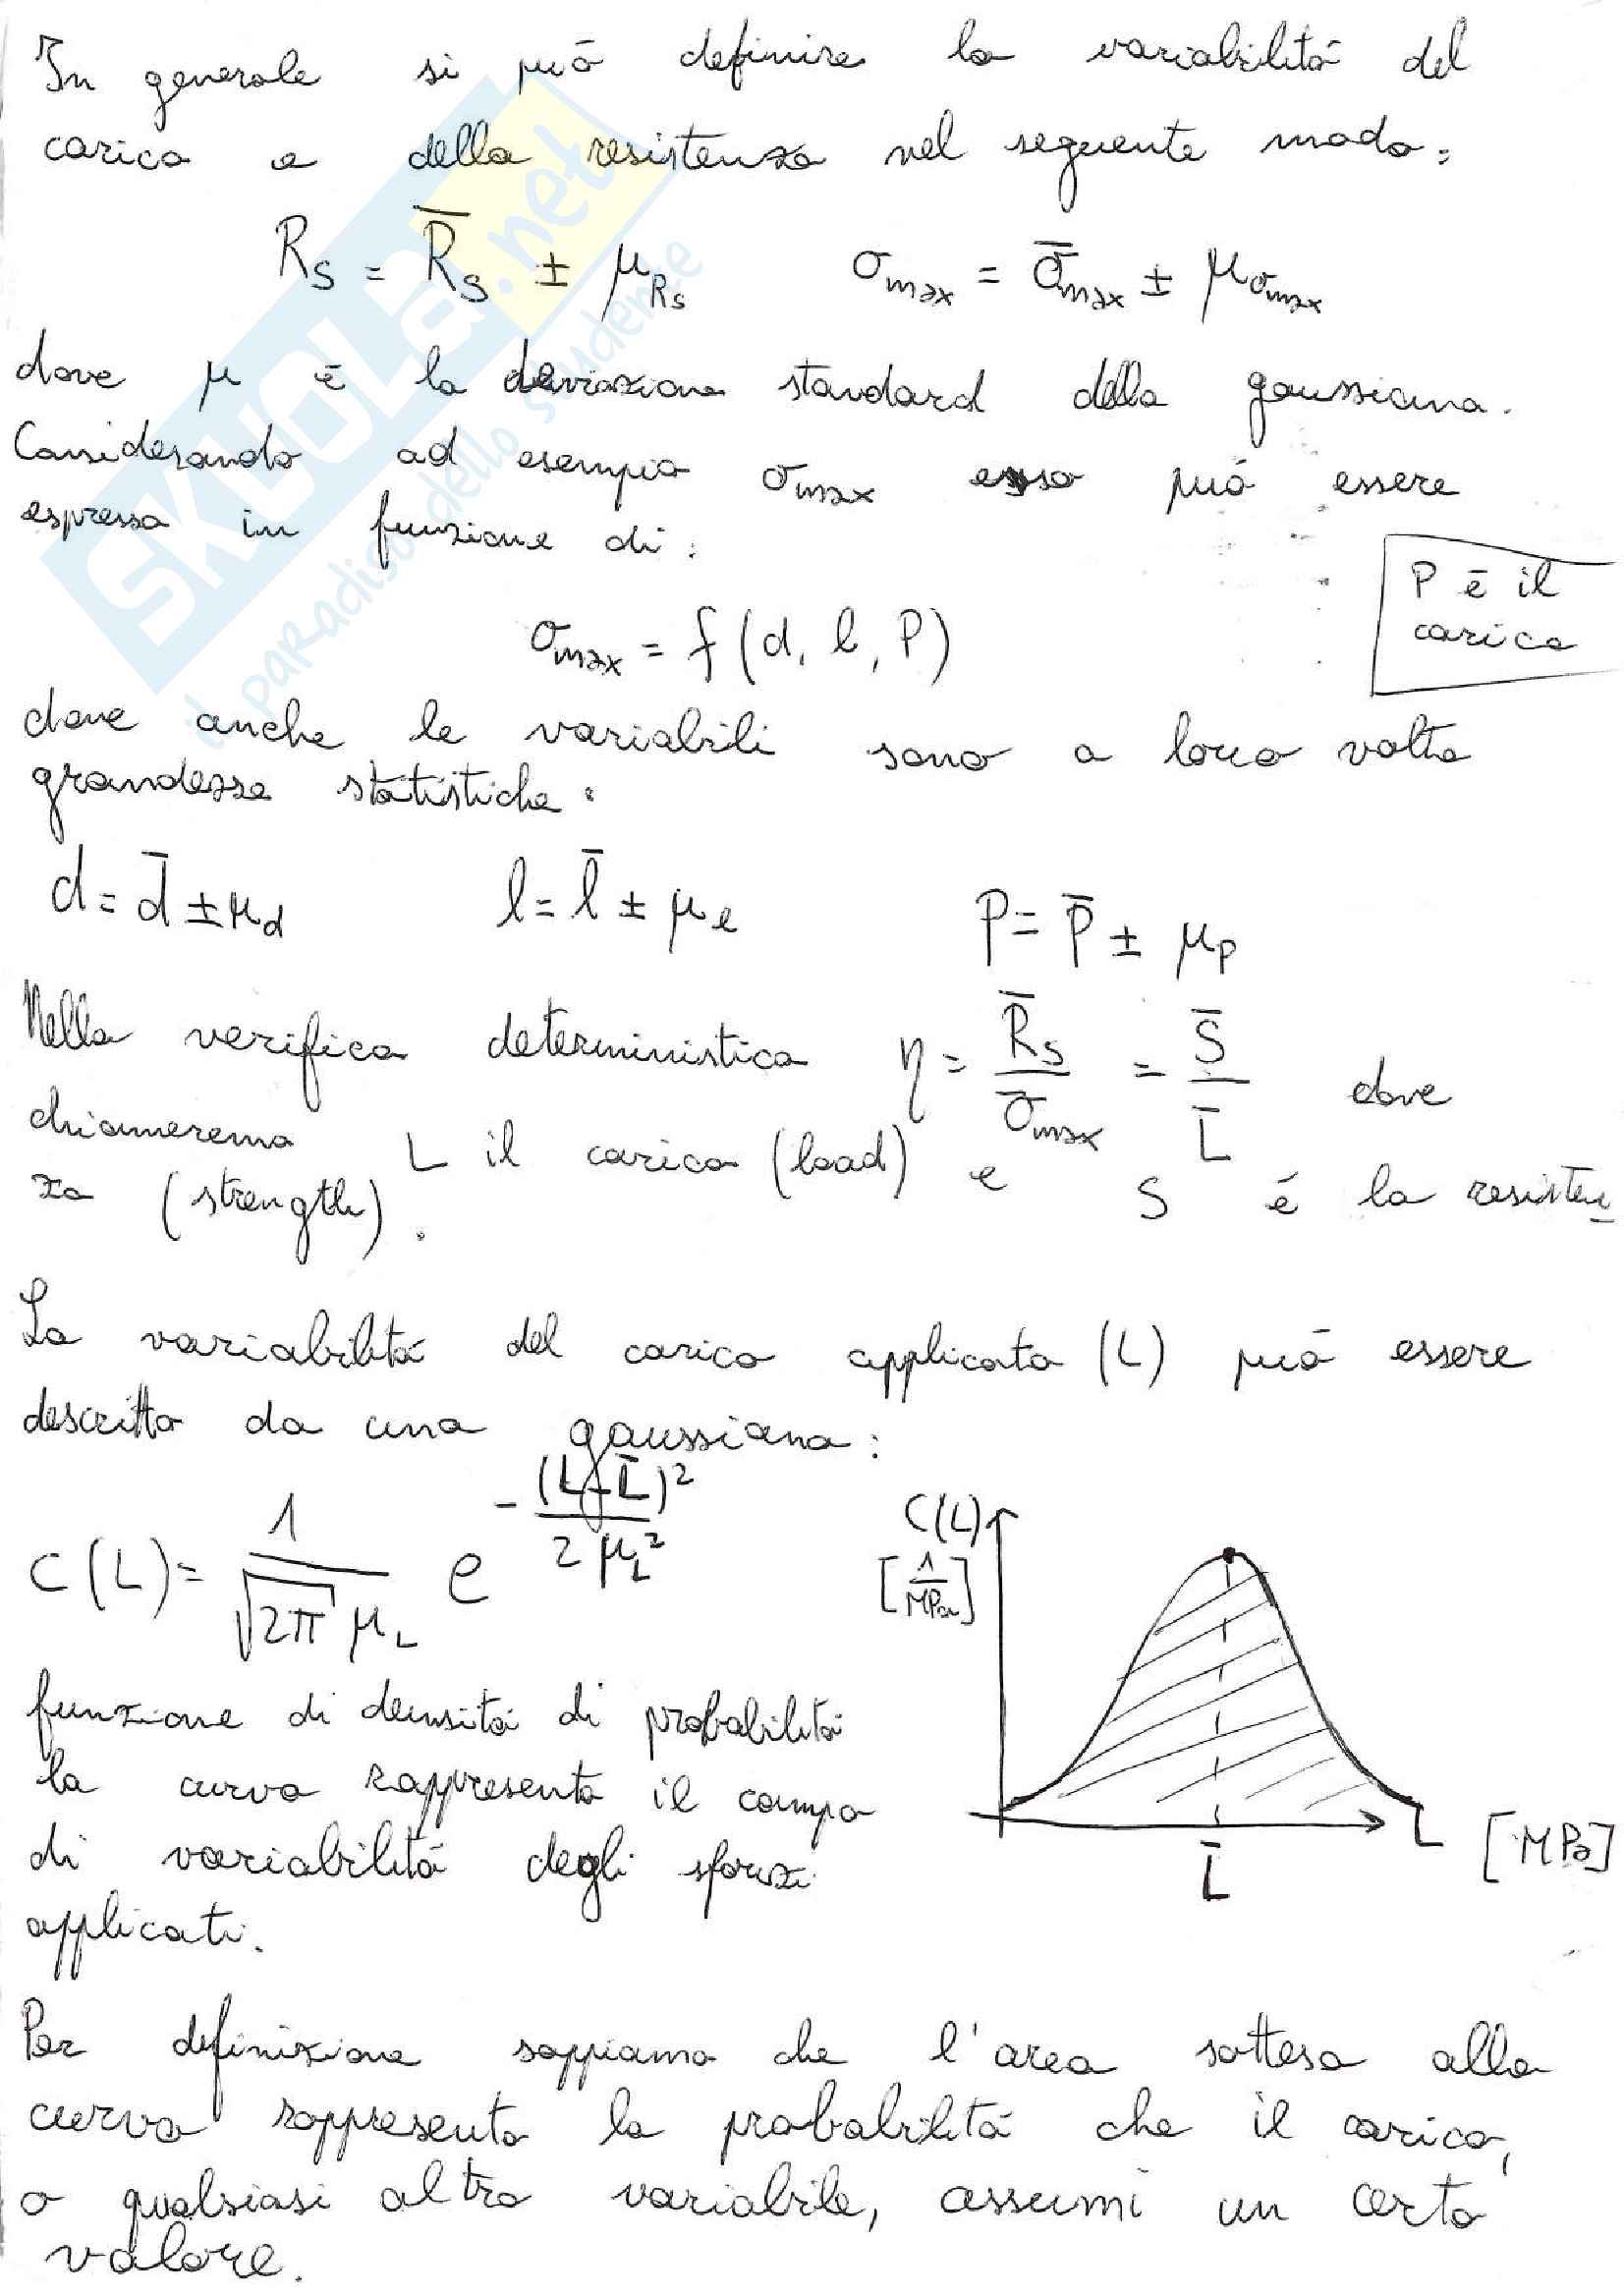 In generale si può definire la variabilità del
carico e della resistenza nel seguente modo:
R_S = R̄_S ± μ_RS    σ_max = σ̄_max ± μ_σmax
dove μ è la deviazione standard della gaussiana.
Considerando ad esempio σ_max esso può essere
espresso in funzione di:
P è il
carico
σ_max = f (d, l, P)
dove anche le variabili sono a loro volta
grandezze statistiche:
d = d̄ ± μ_d    l = l̄ ± μ_l    P = P̄ ± μ_P
Nella verifica deterministica η = R̄_S / σ̄_max = S̄ / L̄ dove
chiameremo L il carico (load) e S è la resisten
za (strength).
La variabilità del carico applicato (L) può essere
descritta da una gaussiana:
C(L) = 1 / (√2π μ_L) e^(-(L-L̄)² / 2μ_L²)
C(L)
[1/MPa]
L̄
L [MPa]
funzione di densità di probabilità
la curva rappresenta il campo
di variabilità degli sforzi
applicati.
Per definizione sappiamo che l'area sottesa alla
curva rappresenta la probabilità che il carico,
o qualsiasi altra variabile, assumi un certo
valore.
SKUOLA.net
il paradiso dello studente